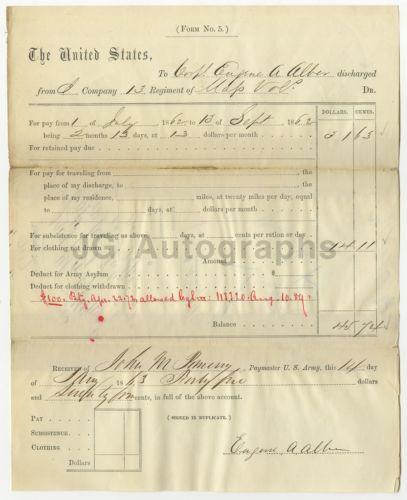 (FORM NO. 5.)
The United States,
To Corp. Eugene A Alber discharged
from I Company 13 Regiment of Mass Vols. DR.
DOLLARS. CENTS.
For pay from 1 of July 1862 to 13 of Sept 1862
being 2 months 13 days, at 13 dollars per month 31 63
For retained pay due
For pay for traveling from the
place of my discharge, to the
place of my residence, miles, at twenty miles per day, equal
to days, at dollars per month
For subsistence for traveling as above, days, at cents per ration or day
For clothing not drawn 14 11
Amount
JG Autographs
Deduct for Army Asylum $
Deduct for clothing withdrawn
$100. Bty. Apr. 22.72, allowed by Aug. 10. 89.
Balance 45 74
RECEIVED of John M Pomeroy Paymaster U. S. Army, this 14 day
of Jany 1863 Forty five dollars
and Seventy four cents, in full of the above account.
PAY
(SIGNED IN DUPLICATE.)
SUBSISTENCE
CLOTHING
Eugene A Alber
Dollars